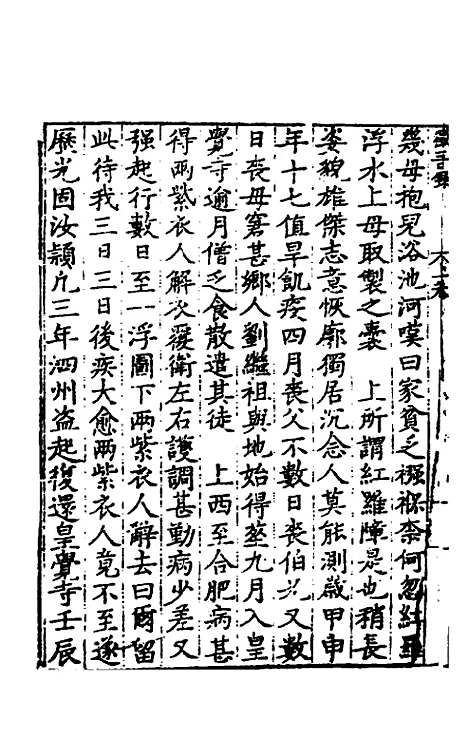 幾母抱兒浴池河嘆曰家貧乏襁褓柰何忽紅羅
浮水上母取製之囊　上所謂紅羅障是也稍長
姿貌雄傑志意恢廓獨居沉念人莫能測歲甲申
年十七值旱飢疾四月喪父不數日喪伯兄又數
日喪母窘甚鄉人劉繼祖與地始得葬九月入皇
覺寺逾月僧乏食散遣其徒　上西至合肥病甚
得兩紫衣人解衣覆衛左右護調甚勤病少差又
强起行數日至一浮圖下兩紫衣人辭去曰爾留
此待我三日三日後疾大愈兩紫衣人竟不至遂
歷光固汝潁凡三年泗州盜起復還皇覺寺壬辰